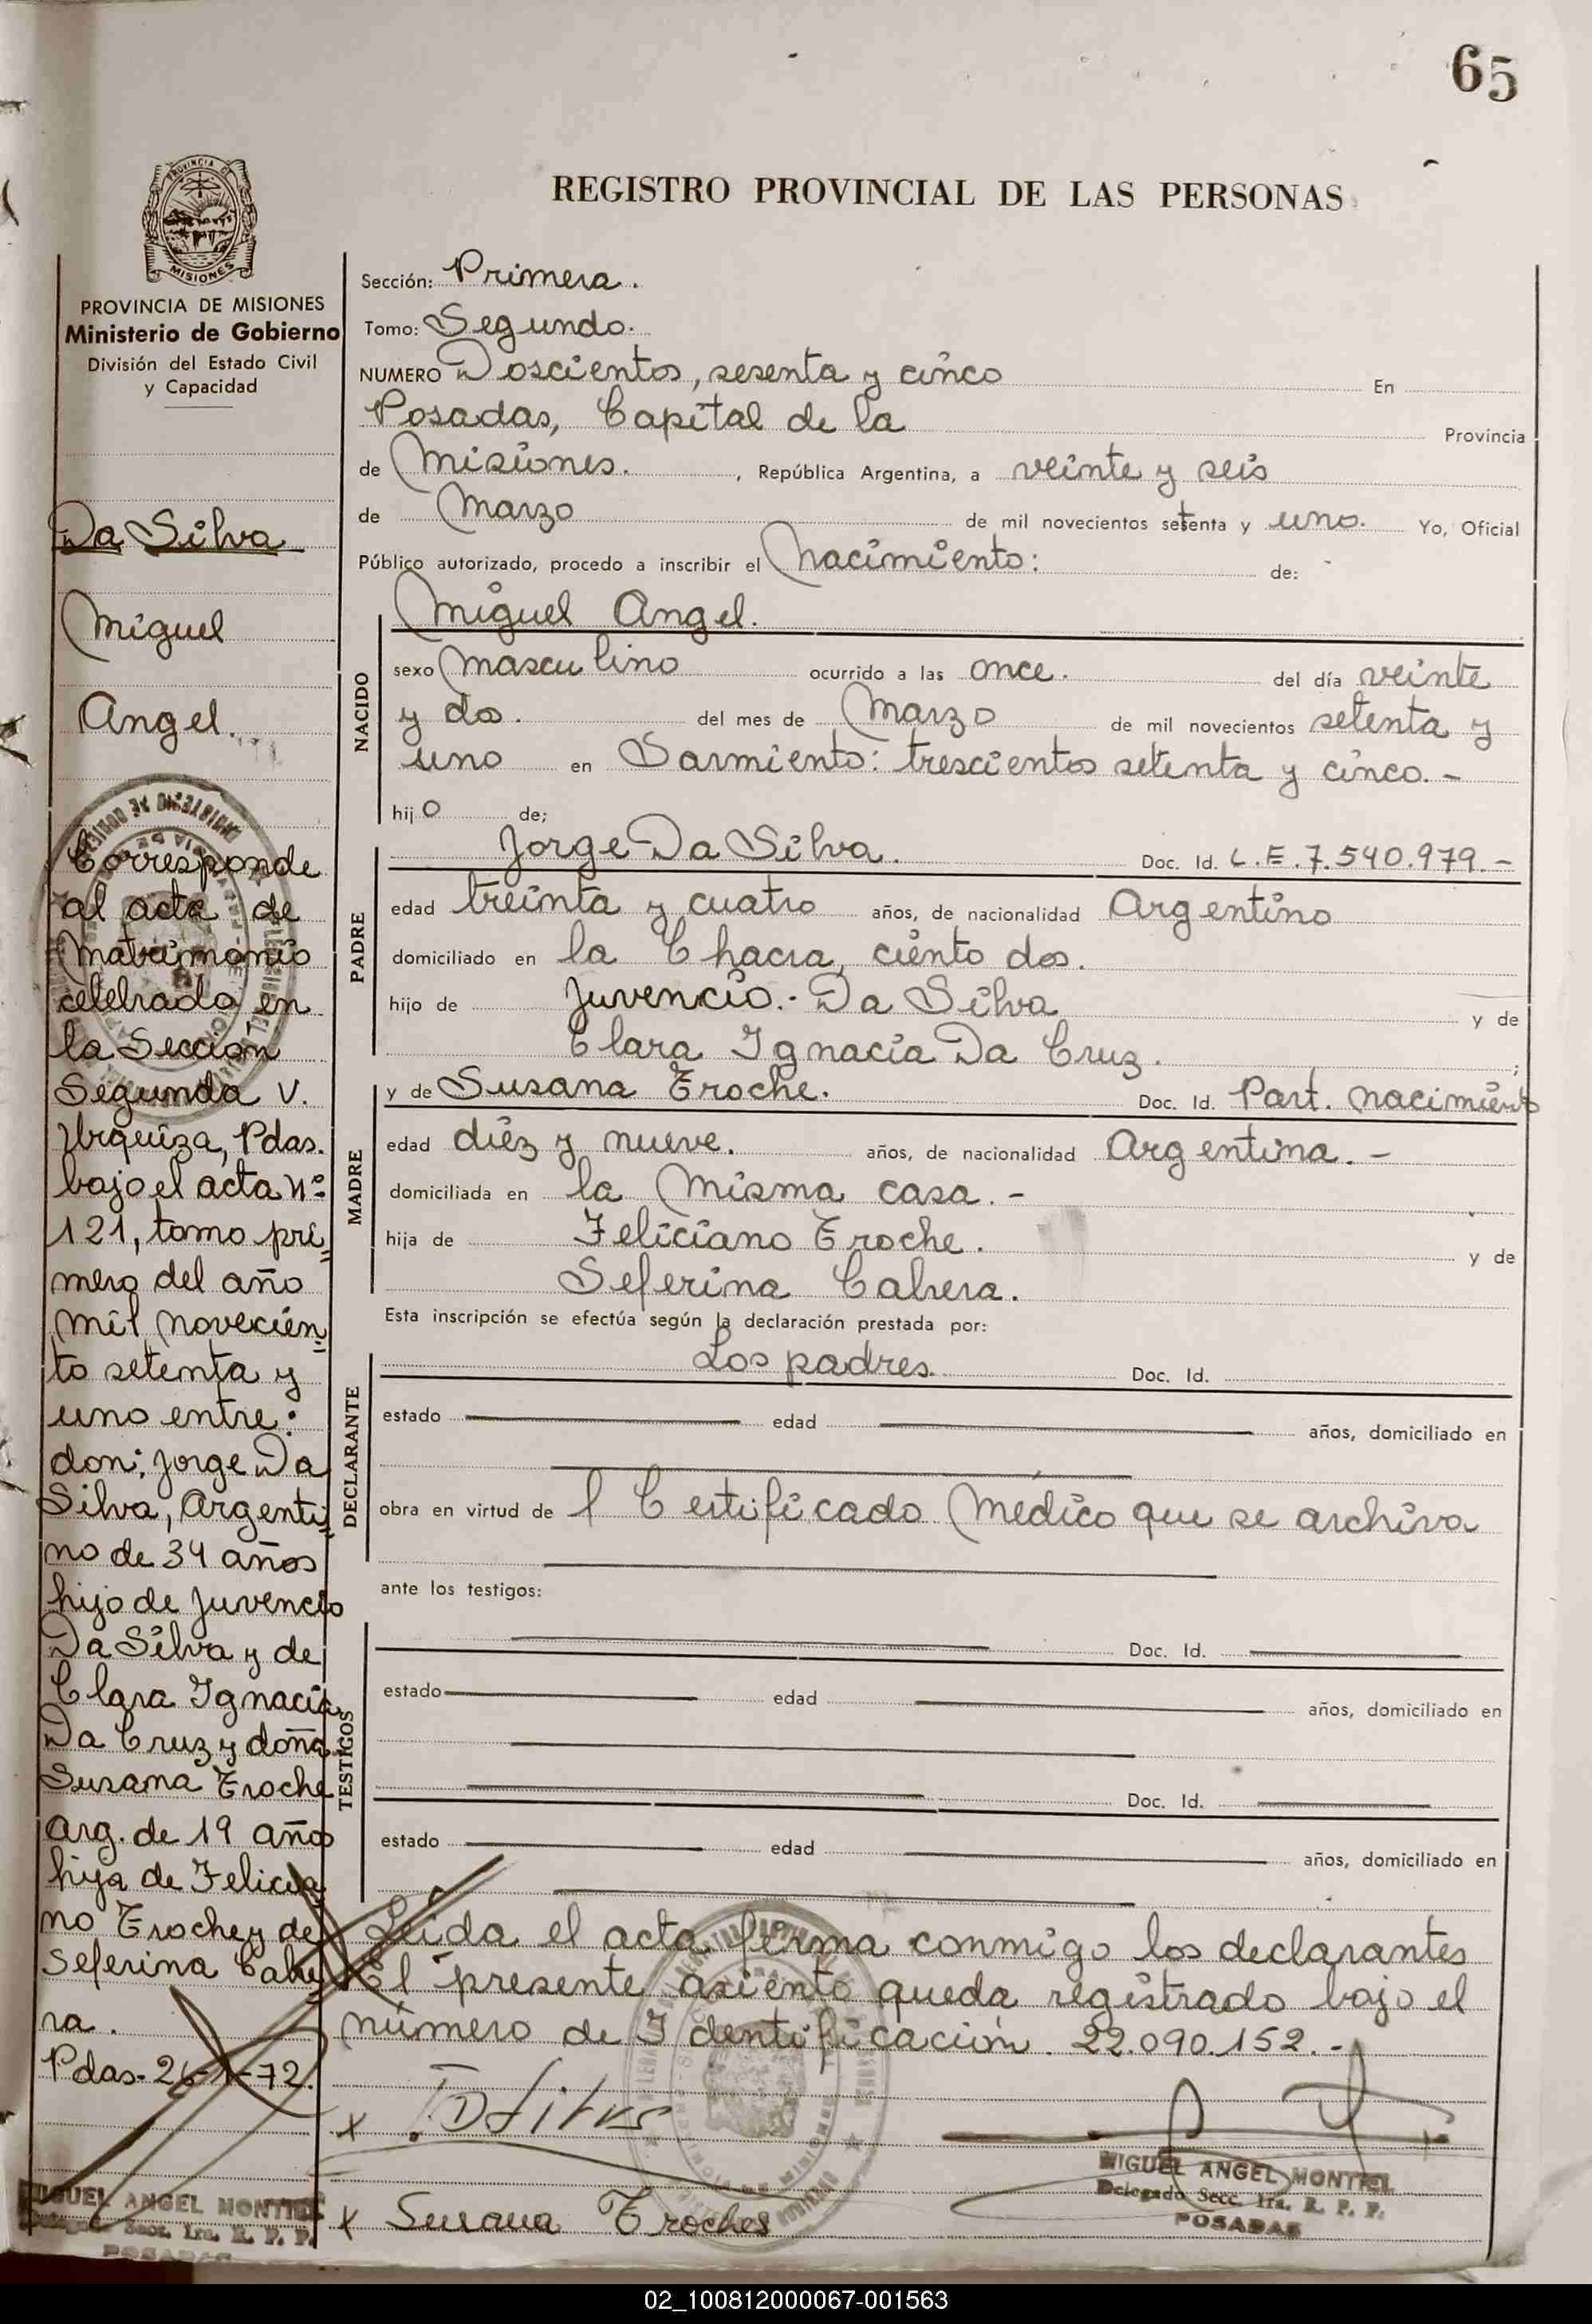 65
REGISTRO PROVINCIAL DE LAS PERSONAS
PROVINCIA DE
MISIONES
PROVINCIA DE MISIONES
Ministerio de Gobierno
División del Estado Civil
y Capacidad
Da Silva
Miguel
Angel.
Corresponde
al acta de
Matrimonio
celebrado en
la Sección
Segunda V.
Urquiza, Pdas.
bajo el acta Nº
121, tomo pri
mero del año
mil novecien
to setenta y
uno entre:
don: Jorge Da
Silva, Argenti
no de 34 años
hijo de Juvencio
Da Silva y de
Clara Ignacia
Da Cruz y doña
Susana Troche
arg. de 19 años
hija de Felicia
no Troche y de
Seferina Cabre
ra.
Pdas-26-1-72.
MIGUEL ANGEL MONTIEL
Delegado Secc. 1ra. R. P. P.
POSADAS
Sección: Primera.
Tomo: Segundo.
NUMERO Doscientos, sesenta y cinco En
Posadas, Capital de la Provincia
de Misiones. , República Argentina, a veinte y seis
de Marzo de mil novecientos setenta y uno. Yo, Oficial
Público autorizado, procedo a inscribir el Nacimiento: de:
Miguel Angel.
NACIDO
sexo masculino ocurrido a las once. del día veinte
y dos. del mes de Marzo de mil novecientos setenta y
uno en Sarmiento: trescientos setenta y cinco.-
hijo de;
PADRE
Jorge Da Silva. Doc. Id. L.E.7.540.979.-
edad treinta y cuatro años, de nacionalidad Argentino
domiciliado en la Chacra, ciento dos.
hijo de Juvencio.- Da Silva y de
Clara Ignacia Da Cruz. ;
MADRE
y de Susana Troche. Doc. Id. Part. nacimiento
edad diez y nueve. años, de nacionalidad Argentina.-
domiciliada en la misma casa.-
hija de Feliciano Troche. y de
Seferina Cabrera.
Esta inscripción se efectúa según la declaración prestada por:
DECLARANTE
Los padres. Doc. Id.
estado edad años, domiciliado en
obra en virtud de l Certificado Médico que se archiva
ante los testigos:
TESTIGOS
Doc. Id.
estado edad años, domiciliado en
Doc. Id.
estado edad años, domiciliado en
Leida el acta firma conmigo los declarantes
El presente asiento queda registrado bajo el
número de Identificación. 22.090.152.-
x
x Susana Troches
MIGUEL ANGEL MONTIEL
Delegado Secc. 1ra. R. P. P.
POSADAS
02_100812000067-001563